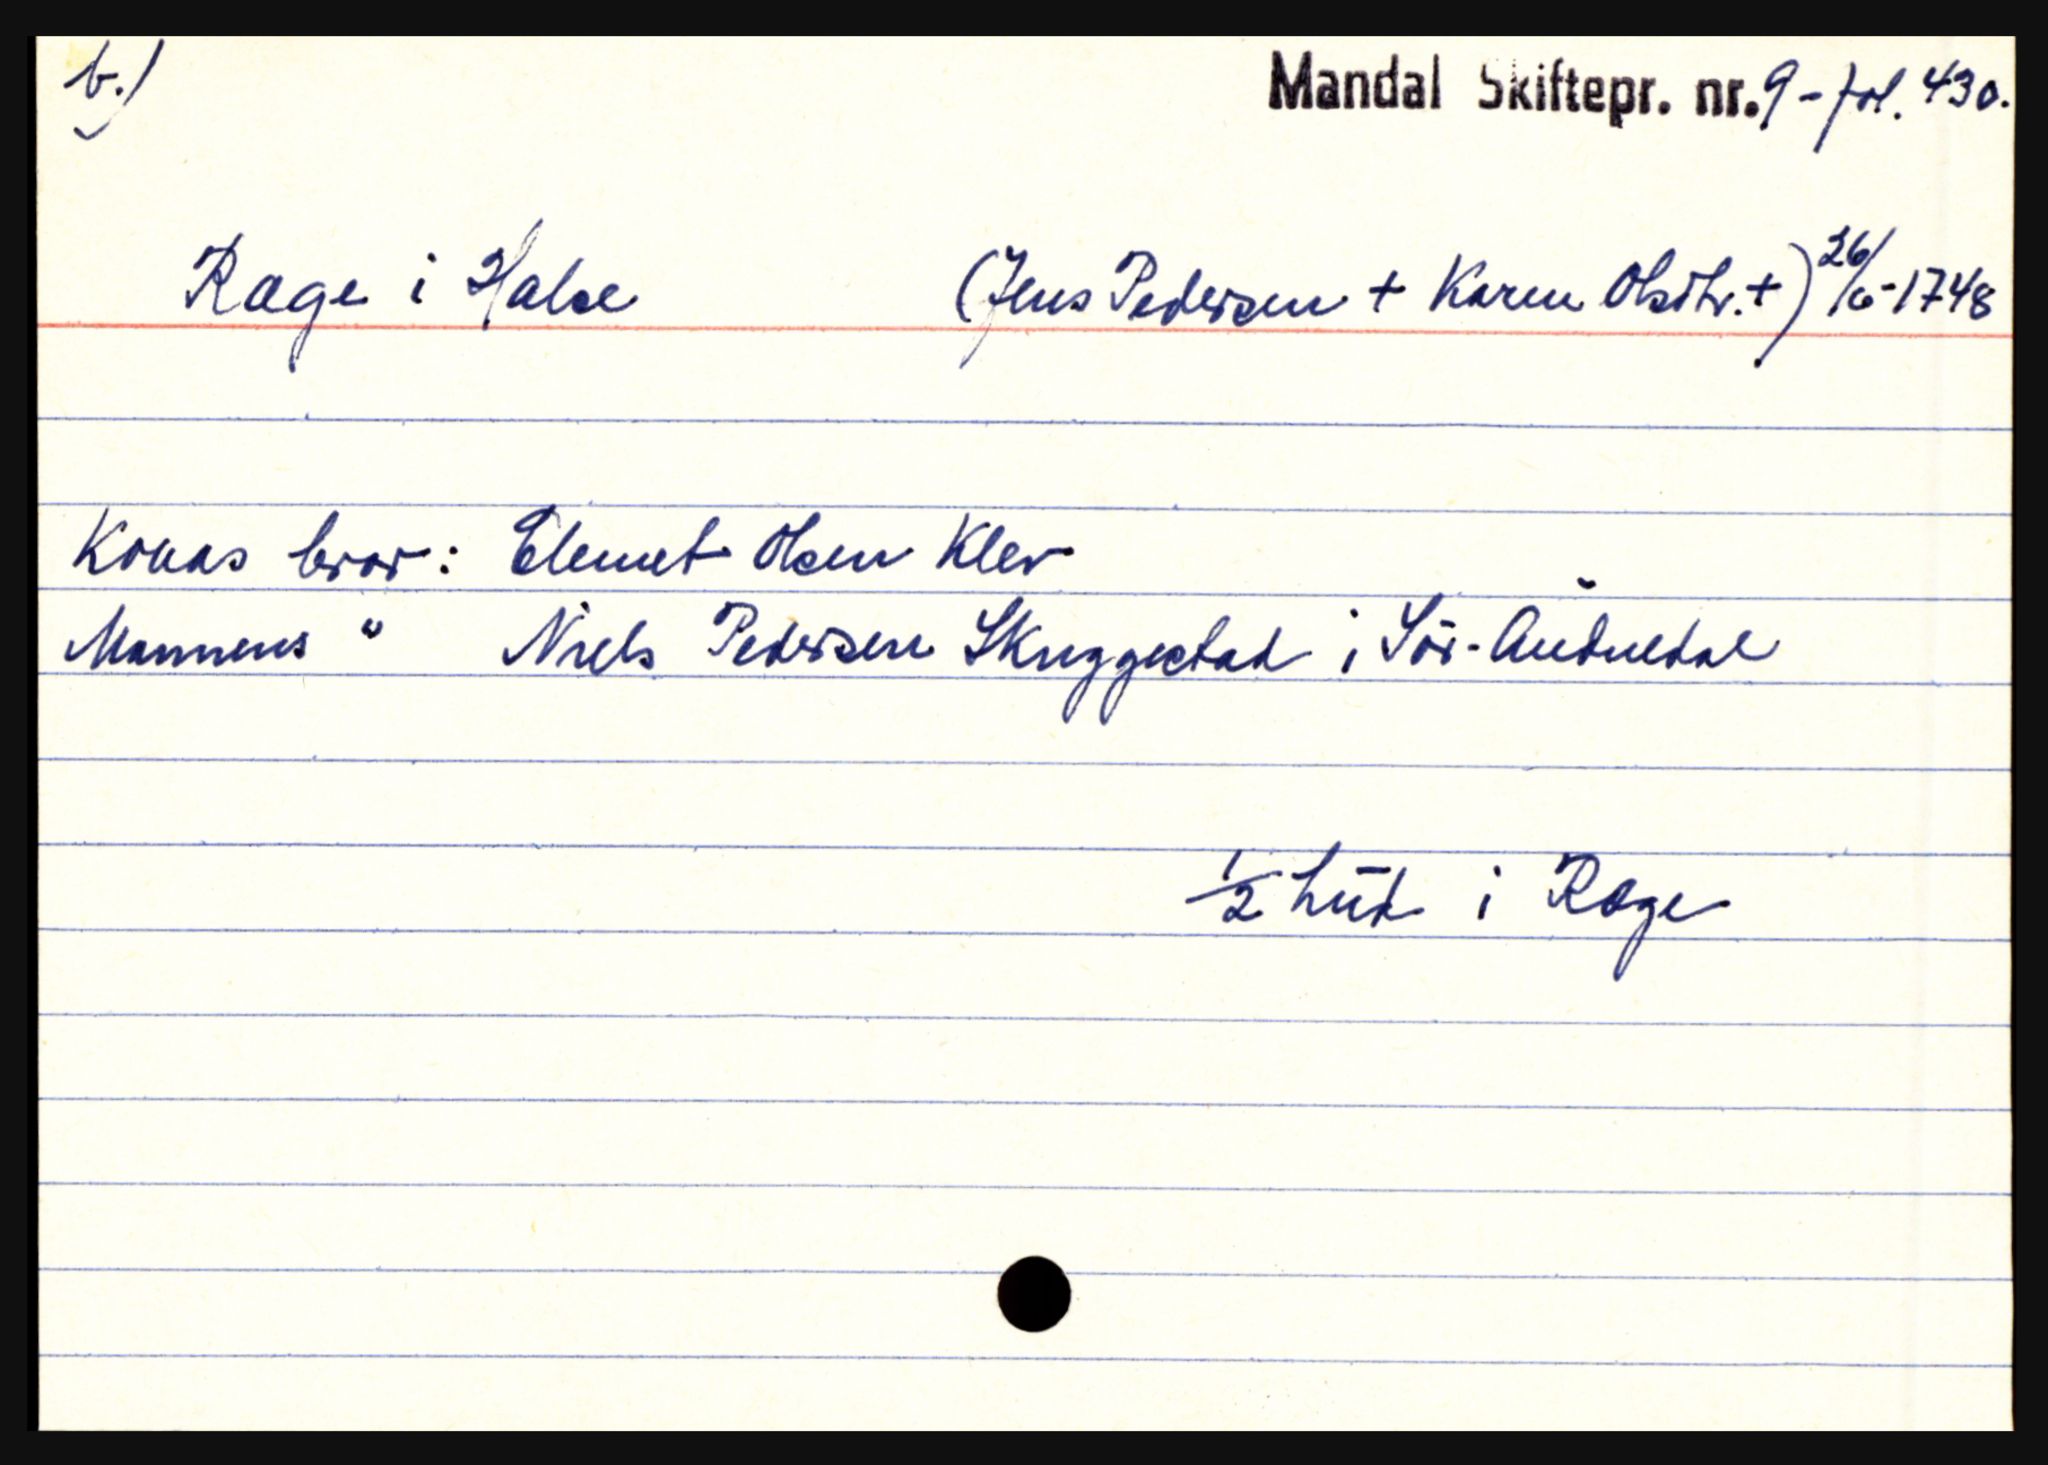 b.)
Mandal Skiftepr. nr. 9 - fol. 430.
Rage i Halse (Jens Pedersen + Karen Olsdtr. +) 26/6-1748
Konas bror: Elemet Olsen Klev
Mannens " Niels Pedersen Skuggestad i Sör-Audnedal
1/2 hud i Rage